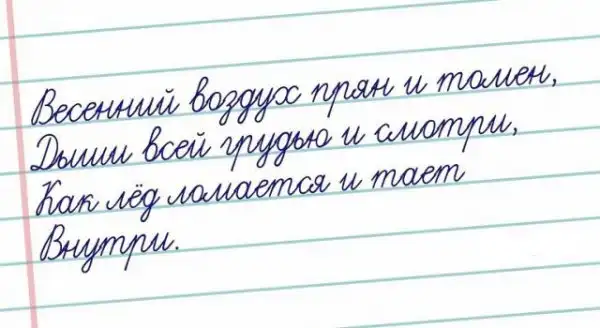 Весенний воздух прян и томен,
Дыши всей грудью и смотри,
Как лёд ломается и тает
Внутри.